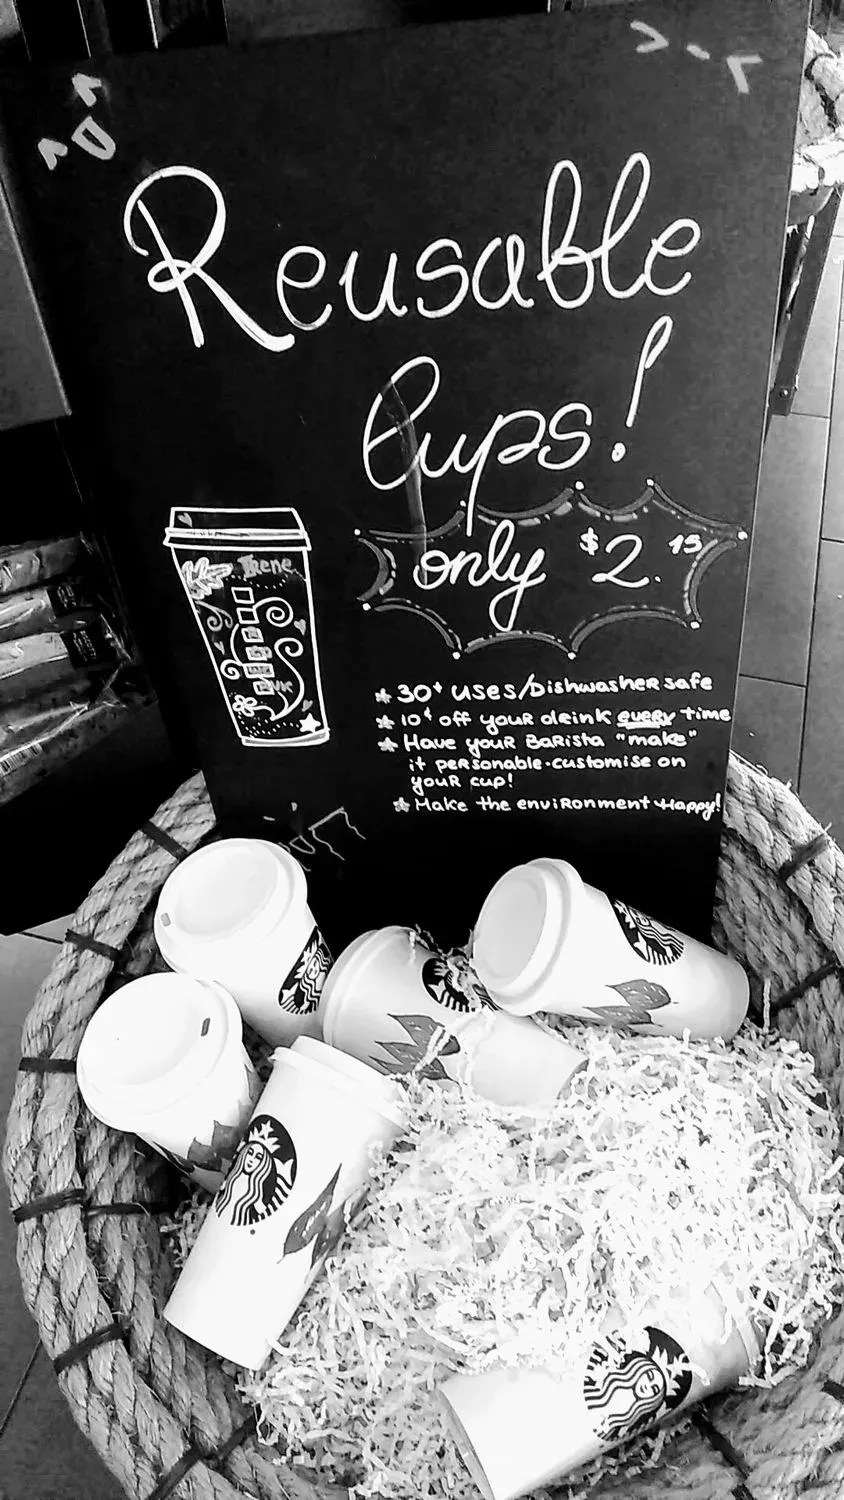 Reusable
Cups!
only $2.15
Irene
30+ uses/Dishwasher safe
10¢ off your drink every time
Have your Barista "make"
it personable-customise on
your cup!
Make the environment Happy!